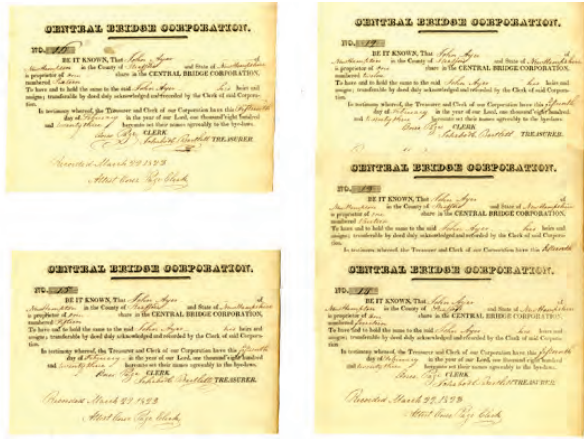 CENTRAL BRIDGE CORPORATION.
NO.
BE IT KNOWN, That John Ayer of
New Hampton in the County of Strafford and State of New Hampshire
is proprietor of one share in the CENTRAL BRIDGE CORPORATION,
numbered
To have and to hold the same to the said John Ayer his heirs and
assigns; transferable by deed duly acknowledged and recorded by the Clerk of said Corpora-
tion.
In testimony whereof, the Treasurer and Clerk of our Corporation have this fifteenth
day of February in the year of our Lord, one thousand eight hundred
and twenty three hereunto set their names agreeably to the bye-laws.
CLERK
Bartlett TREASURER.
Recorded March 22 1823
Attest Page Clerk
CENTRAL BRIDGE CORPORATION.
NO. 15
BE IT KNOWN, That John Ayer of
New Hampton in the County of Strafford and State of New Hampshire
is proprietor of one share in the CENTRAL BRIDGE CORPORATION,
numbered fifteen
To have and to hold the same to the said John Ayer his heirs and
assigns; transferable by deed duly acknowledged and recorded by the Clerk of said Corpora-
tion.
In testimony whereof, the Treasurer and Clerk of our Corporation have this fifteenth
day of February in the year of our Lord, one thousand eight hundred
and twenty three hereunto set their names agreeably to the bye-laws.
Page CLERK
Bartlett TREASURER.
Recorded March 22, 1823
Attest Page Clerk
CENTRAL BRIDGE CORPORATION.
NO.
BE IT KNOWN, That John Ayer of
New Hampton in the County of Strafford and State of New Hampshire
is proprietor of one share in the CENTRAL BRIDGE CORPORATION,
numbered
To have and to hold the same to the said John Ayer his heirs and
assigns; transferable by deed duly acknowledged and recorded by the Clerk of said Corpora-
tion.
In testimony whereof, the Treasurer and Clerk of our Corporation have this fifteenth
day of February in the year of our Lord, one thousand eight hundred
and twenty three hereunto set their names agreeably to the bye-laws.
Page CLERK
Bartlett TREASURER.
CENTRAL BRIDGE CORPORATION.
NO.
BE IT KNOWN, That John Ayer of
New Hampton in the County of Strafford and State of New Hampshire
is proprietor of one share in the CENTRAL BRIDGE CORPORATION,
numbered
To have and to hold the same to the said John Ayer his heirs and
assigns; transferable by deed duly acknowledged and recorded by the Clerk of said Corpora-
tion.
In testimony whereof, the Treasurer and Clerk of our Corporation have this fifteenth
CENTRAL BRIDGE CORPORATION.
NO.
BE IT KNOWN, That John Ayer of
New Hampton in the County of Strafford and State of New Hampshire
is proprietor of one share in the CENTRAL BRIDGE CORPORATION,
numbered
To have and to hold the same to the said John Ayer his heirs and
assigns; transferable by deed duly acknowledged and recorded by the Clerk of said Corpora-
tion.
In testimony whereof, the Treasurer and Clerk of our Corporation have this fifteenth
day of February in the year of our Lord, one thousand eight hundred
and twenty three hereunto set their names agreeably to the bye-laws.
Page CLERK
Bartlett TREASURER.
Recorded March 22, 1823
Attest Page Clerk